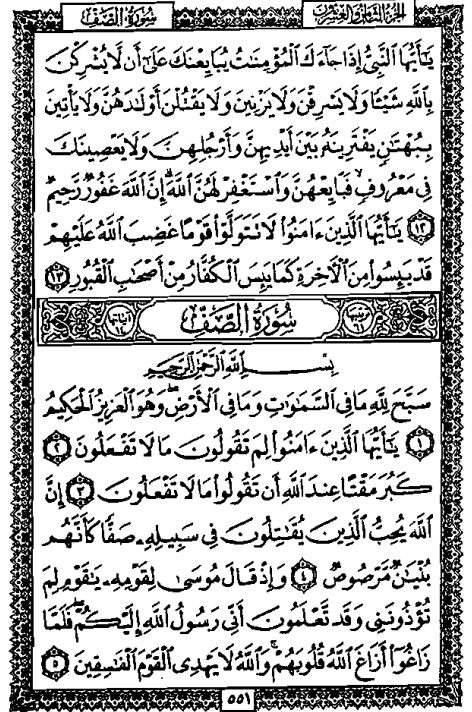 الجزء الثامن والعشرون سورة الصف
يَٰٓأَيُّهَا ٱلنَّبِيُّ إِذَا جَآءَكَ ٱلْمُؤْمِنَٰتُ يُبَايِعْنَكَ عَلَىٰٓ أَن لَّا يُشْرِكْنَ
بِٱللَّهِ شَيْـًٔا وَلَا يَسْرِقْنَ وَلَا يَزْنِينَ وَلَا يَقْتُلْنَ أَوْلَٰدَهُنَّ وَلَا يَأْتِينَ
بِبُهْتَٰنٍ يَفْتَرِينَهُۥ بَيْنَ أَيْدِيهِنَّ وَأَرْجُلِهِنَّ وَلَا يَعْصِينَكَ
فِى مَعْرُوفٍ ۙ فَبَايِعْهُنَّ وَٱسْتَغْفِرْ لَهُنَّ ٱللَّهَ ۖ إِنَّ ٱللَّهَ غَفُورٌ رَّحِيمٌ
١٢ يَٰٓأَيُّهَا ٱلَّذِينَ ءَامَنُوا۟ لَا تَتَوَلَّوْا۟ قَوْمًا غَضِبَ ٱللَّهُ عَلَيْهِمْ
قَدْ يَئِسُوا۟ مِنَ ٱلْءَاخِرَةِ كَمَا يَئِسَ ٱلْكُفَّارُ مِنْ أَصْحَٰبِ ٱلْقُبُورِ ١٣
ترتيبها ٦١ سُورَةُ الصَّفِّ آياتها ١٤
بِسْمِ ٱللَّهِ ٱلرَّحْمَٰنِ ٱلرَّحِيمِ
سَبَّحَ لِلَّهِ مَا فِى ٱلسَّمَٰوَٰتِ وَمَا فِى ٱلْأَرْضِ ۖ وَهُوَ ٱلْعَزِيزُ ٱلْحَكِيمُ
١ يَٰٓأَيُّهَا ٱلَّذِينَ ءَامَنُوا۟ لِمَ تَقُولُونَ مَا لَا تَفْعَلُونَ ٢
كَبُرَ مَقْتًا عِندَ ٱللَّهِ أَن تَقُولُوا۟ مَا لَا تَفْعَلُونَ ٣ إِنَّ
ٱللَّهَ يُحِبُّ ٱلَّذِينَ يُقَٰتِلُونَ فِى سَبِيلِهِۦ صَفًّا كَأَنَّهُم
بُنْيَٰنٌ مَّرْصُوصٌ ٤ وَإِذْ قَالَ مُوسَىٰ لِقَوْمِهِۦ يَٰقَوْمِ لِمَ
تُؤْذُونَنِى وَقَد تَّعْلَمُونَ أَنِّى رَسُولُ ٱللَّهِ إِلَيْكُمْ ۖ فَلَمَّا
زَاغُوٓا۟ أَزَاغَ ٱللَّهُ قُلُوبَهُمْ ۚ وَٱللَّهُ لَا يَهْدِى ٱلْقَوْمَ ٱلْفَٰسِقِينَ ٥
٥٥١